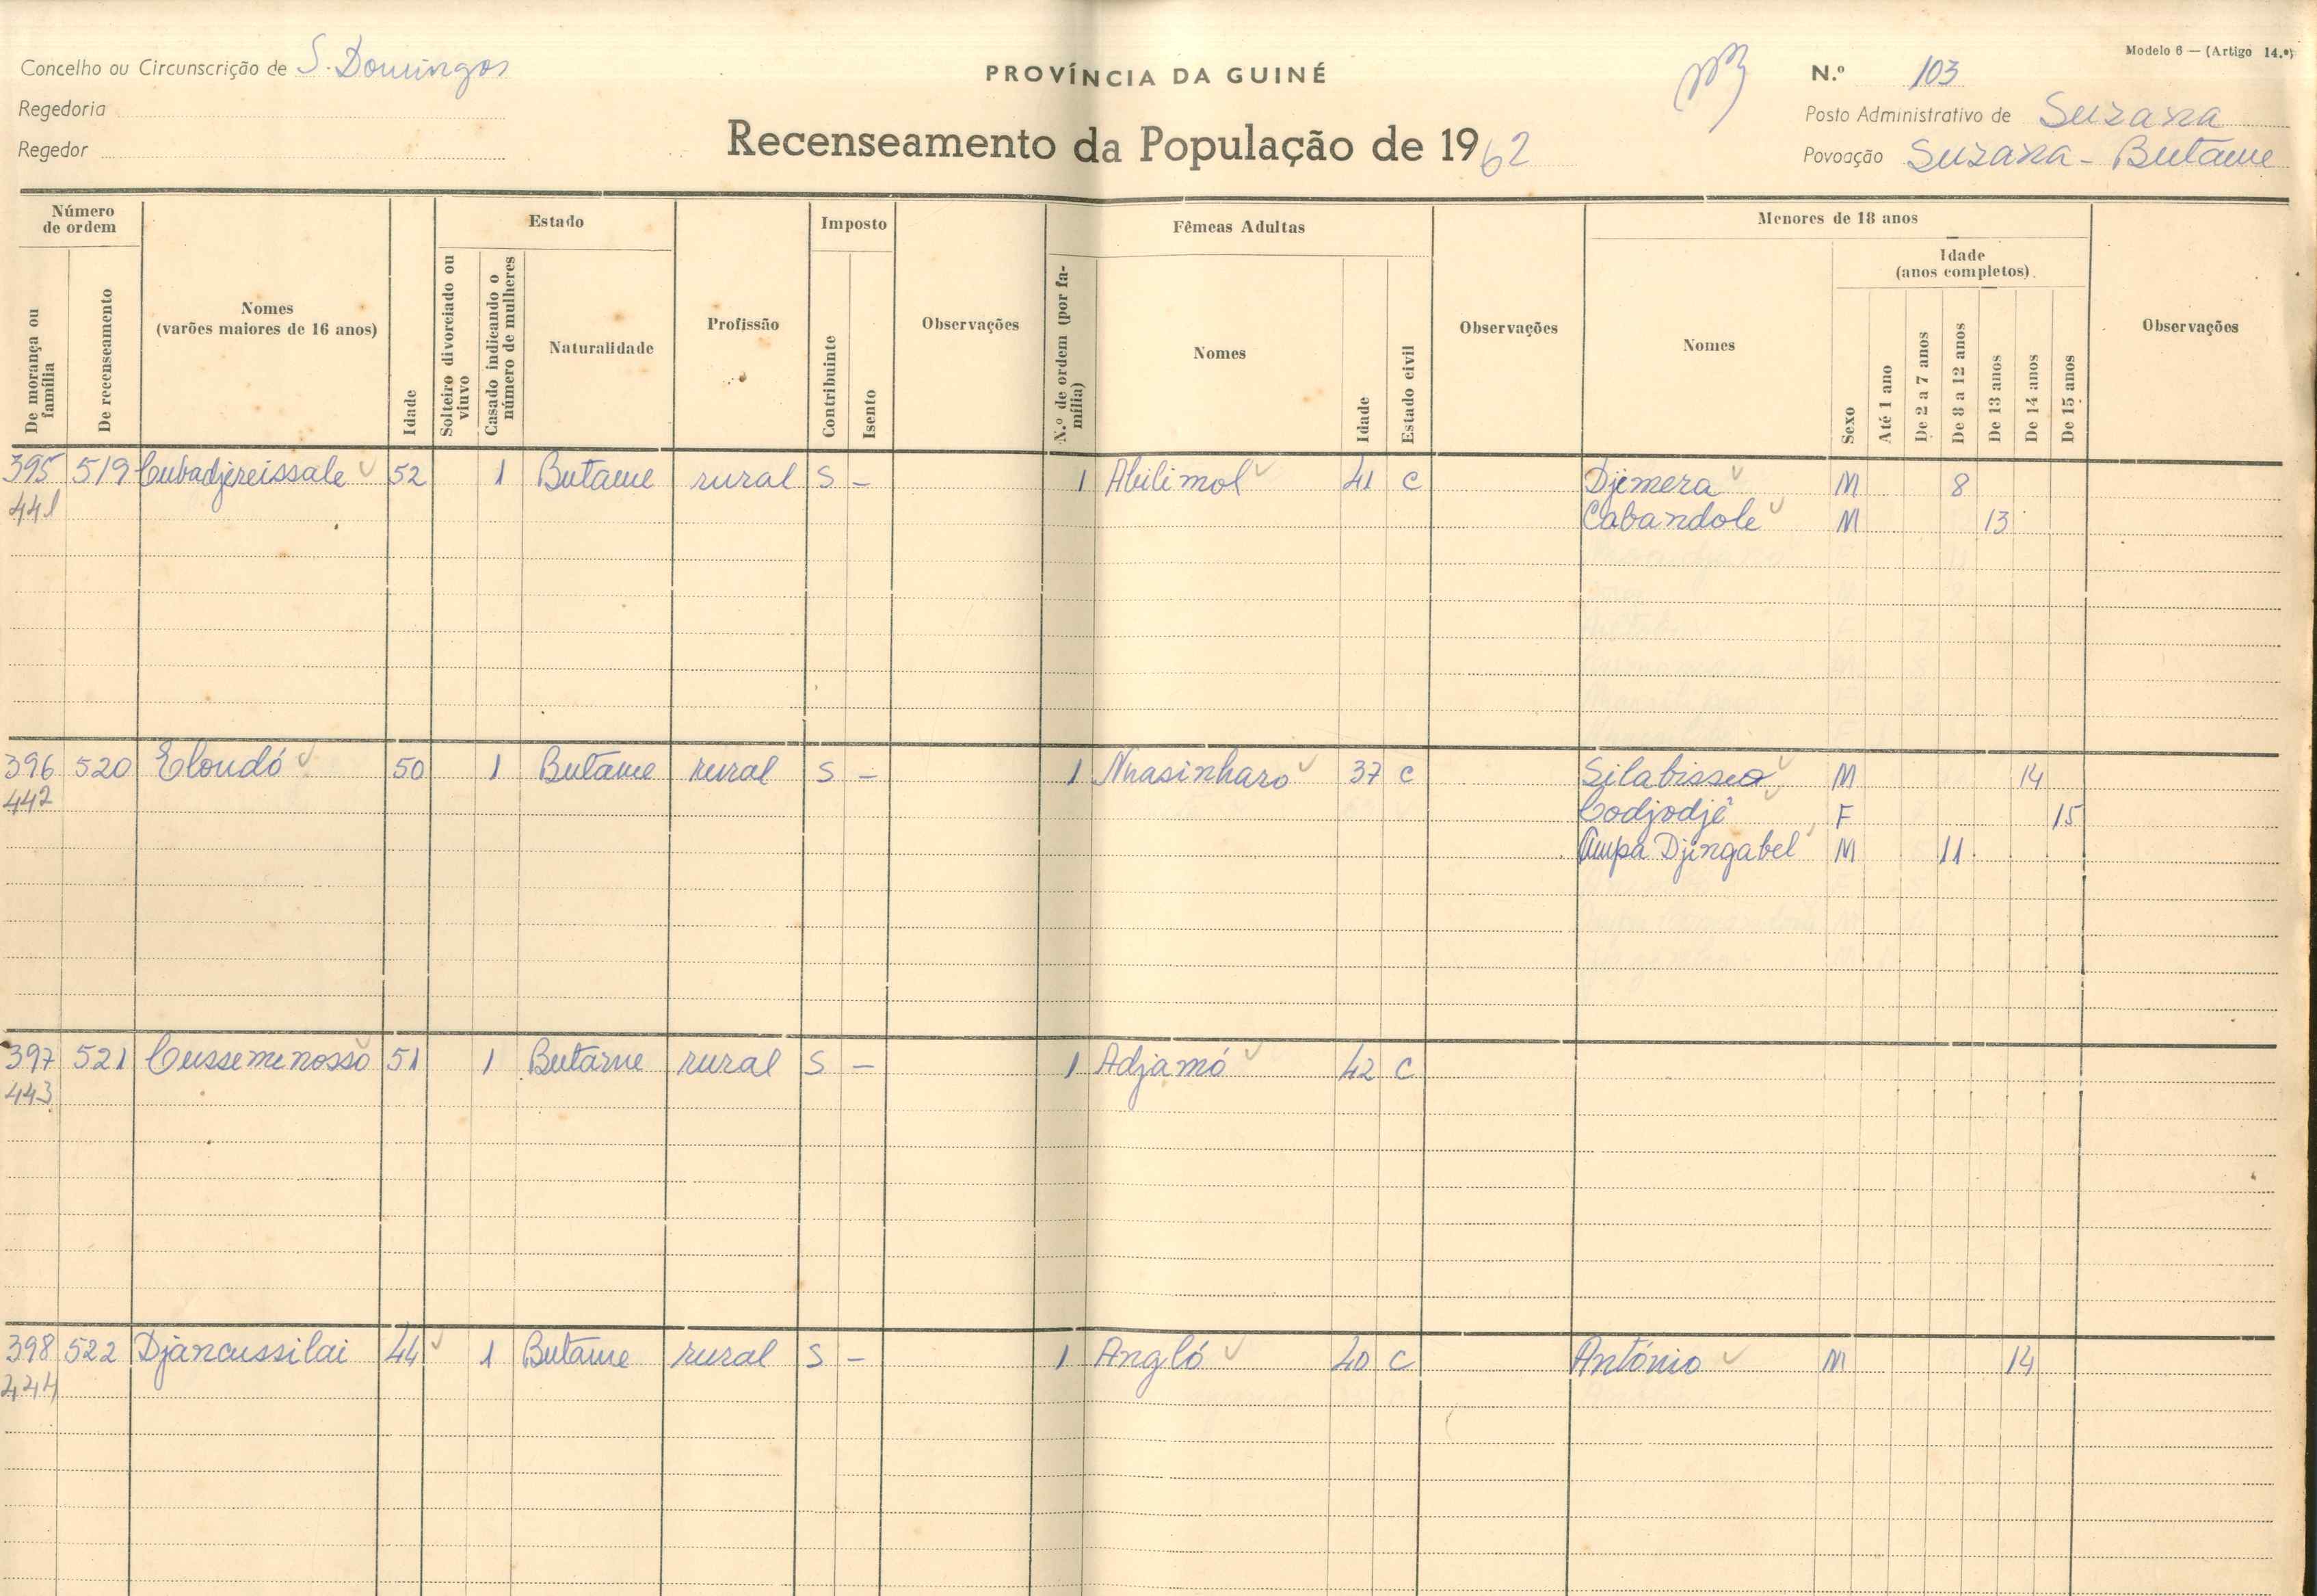 Modelo 6 — (Artigo 14.º)
Concelho ou Circunscrição de S. Domingos
PROVÍNCIA DA GUINÉ
N.º 103
Regedoria
Posto Administrativo de Suzana
Regedor
Recenseamento da População de 1962
Povoação Suzana - Butame
Número de ordem
Estado
Imposto
Fêmeas Adultas
Menores de 18 anos
Idade
(anos completos)
De morança ou família
De recenseamento
Nomes
(varões maiores de 16 anos)
Idade
Solteiro divorciado ou viuvo
Casado indicando o número de mulheres
Naturalidade
Profissão
Contribuinte
Isento
Observações
N.º de ordem (por família)
Nomes
Idade
Estado civil
Observações
Nomes
Sexo
Até 1 ano
De 2 a 7 anos
De 8 a 12 anos
De 13 anos
De 14 anos
De 15 anos
Observações
395 519 Cubadjereissale 52 1 Butame rural S — 1 Abilimol 41 C Djemera M 8
441 Cabandole M 13
396 520 Eloudó 50 1 Butame rural S — 1 Nhasinharo 37 C Silabisseo M 14
442 Codjodjê F 15
Ampa Djingabel M 11
397 521 Cusseminosso 51 1 Butame rural S — 1 Adjamó 42 C
443
398 522 Djancussilai 44 1 Butame rural S — 1 Angló 40 C António M 14
444